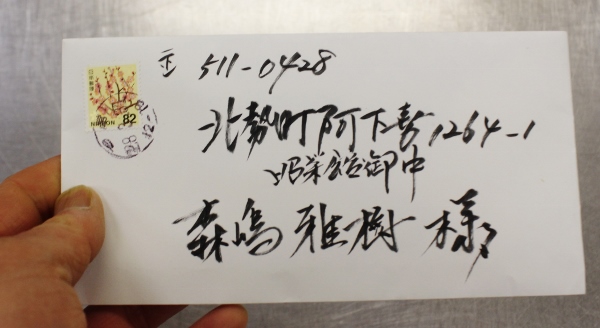 〒 511-0428
北勢町阿下喜1264-1
昭栄館御中
森嶋雅樹様
日本郵便
NIPPON 82